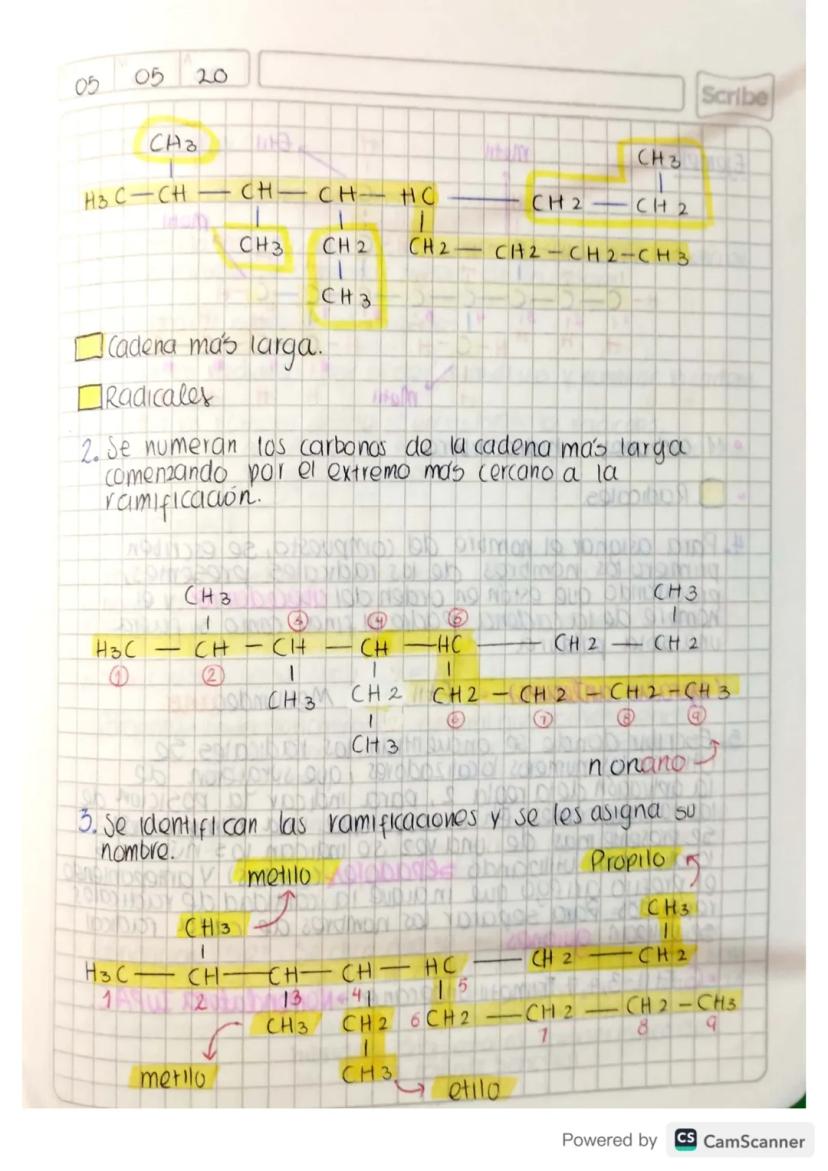 05 05 20
Scribe
CH3
CH3
H3C — CH — CH — CH — HC — CH2 — CH2
CH3 CH2 CH2 — CH2 — CH2 — CH3
CH3
Cadena más larga.
Radicales
2. Se numeran los carbonos de la cadena más larga
comenzando por el extremo más cercano a la
ramificación.
CH3 CH3
③ ④ ⑤
H3C — CH — CH — CH — HC — CH2 — CH2
① ②
CH3 CH2 CH2 — CH2 — CH2 — CH3
⑥ ⑦ ⑧ ⑨
CH3
nonano
3. Se identifican las ramificaciones y se les asigna su
nombre.
metilo Propilo
CH3 CH3
H3C — CH — CH — CH — HC — CH2 — CH2
1 2 3 4 5
CH3 CH2 6 CH2 — CH2 — CH2 — CH3
7 8 9
metilo CH3 etilo
Powered by CS CamScanner